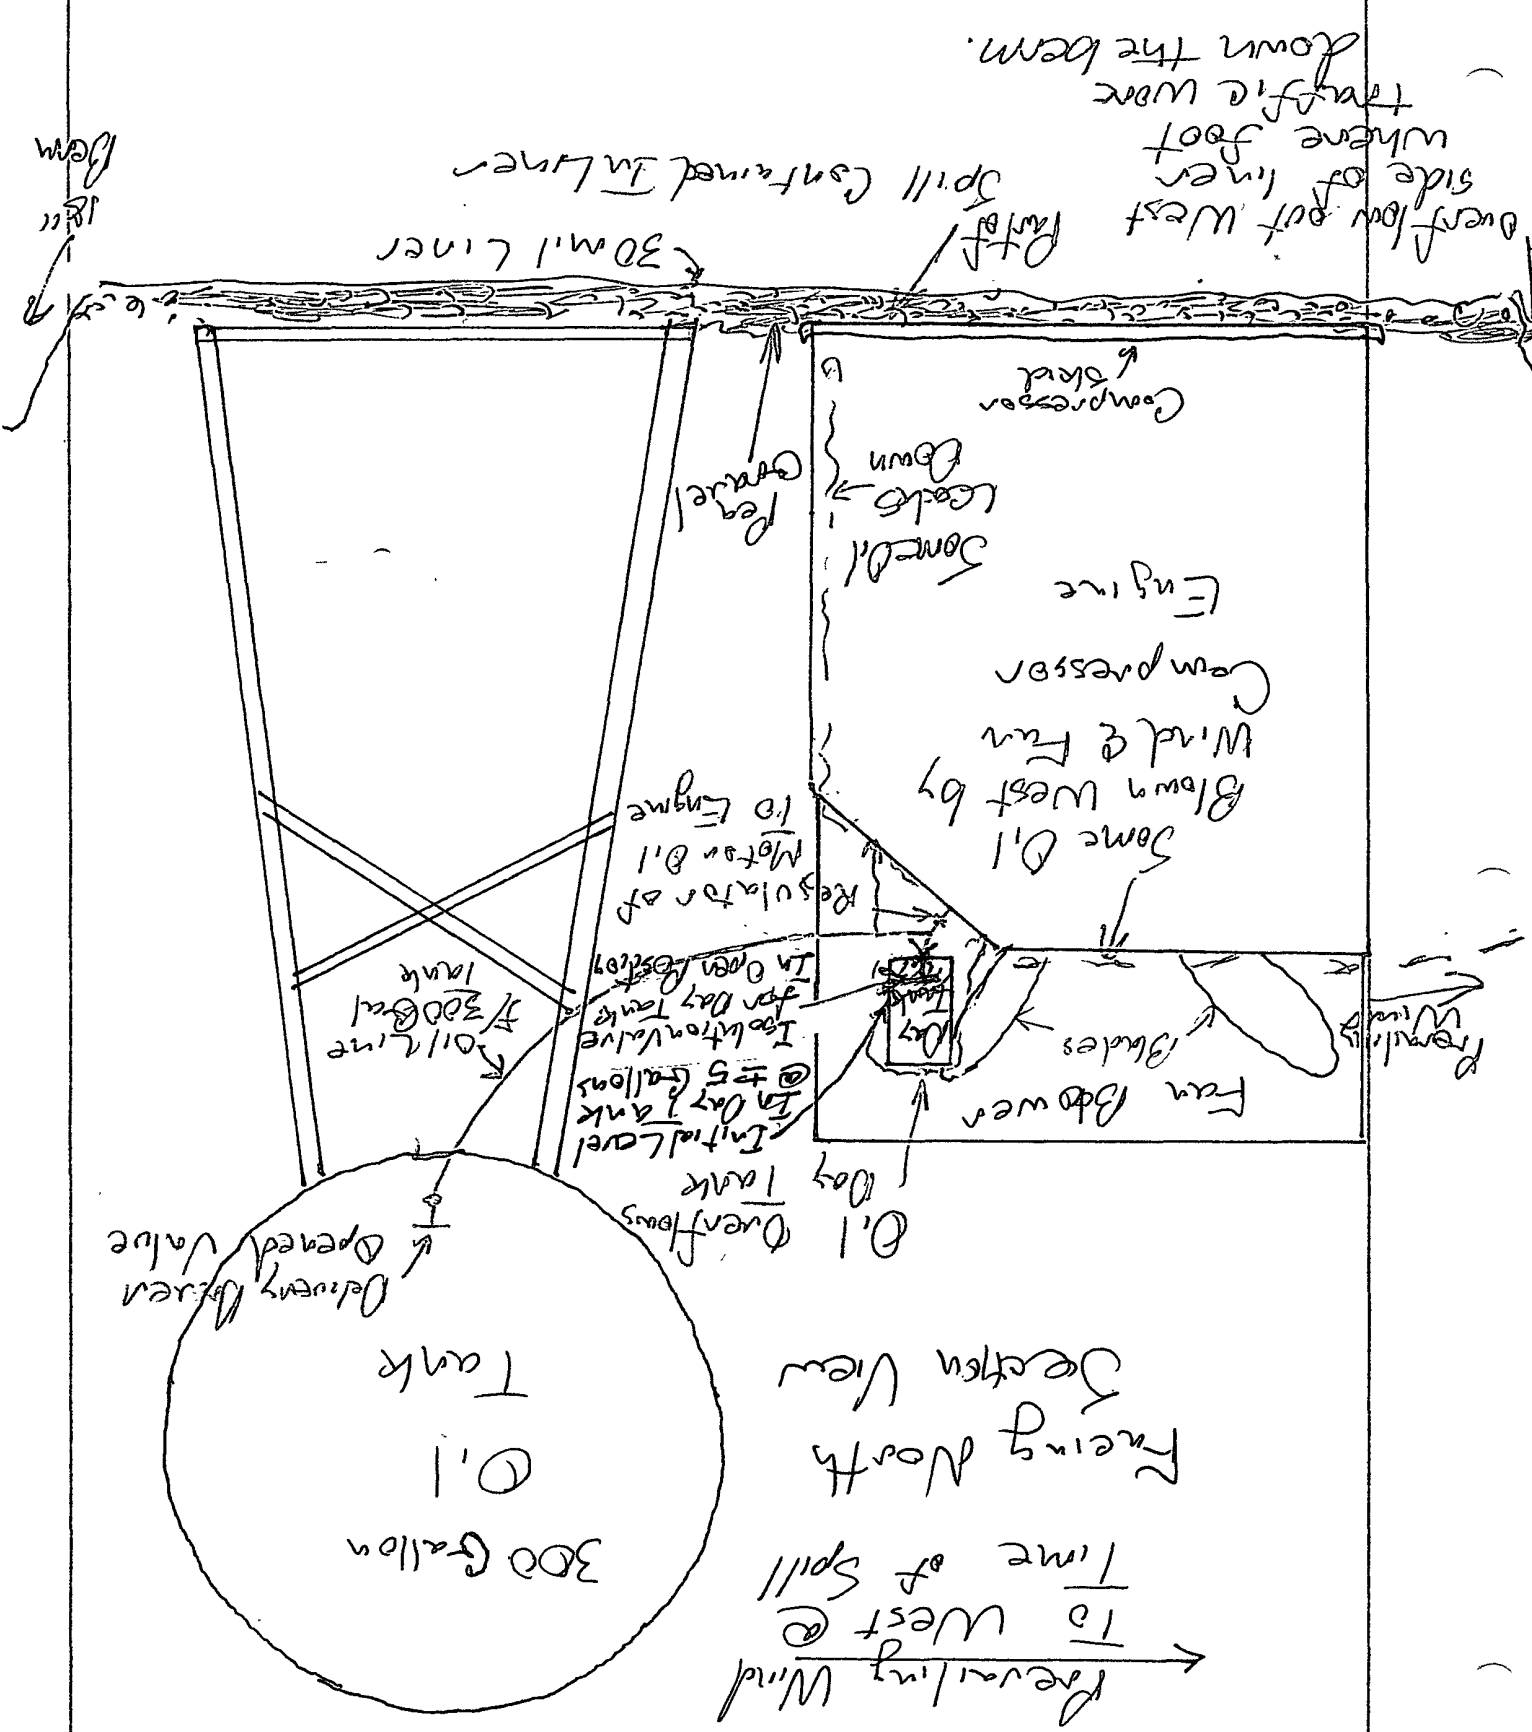 Prevailing Wind
To West @
Time of Spill
Facing North
Section View
300 Gallon
Oil
Tank
Delivery Driver
Opened Valve
Oil
Day
Overflows
Tank
Initial Level
In Day Tank
@ ± 5 Gallons
Isolation Valve
for Day Tank
In Open Position
Regulator of
Motor Oil
To Engine
Oil Line
f/300 Gal
Tank
Fan Blower
Blades
Day
Tank
Prevailing
Wind
Some Oil
Blown West by
Wind & Fan
Compressor
Engine
Some Oil
Leaks
Down
Pea
Gravel
Compressor
Skid
30 mil Liner
18"
Berm
Part of
Spill Contained In Liner
Overflow out West
side of liner
where foot
traffic wore
down the berm.